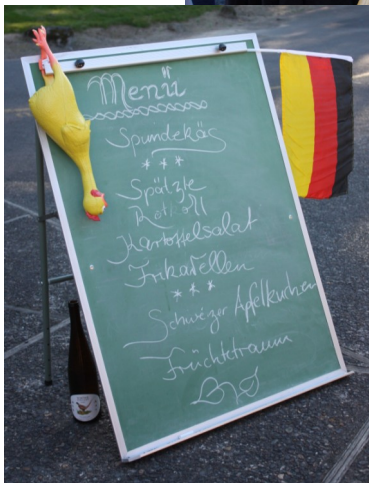 Menü
Spundekäs
***
Spätzle
Rotkoll
Kartoffelsalat
Frikadellen
***
Schweizer Apfelkuchen
Früchtetraum